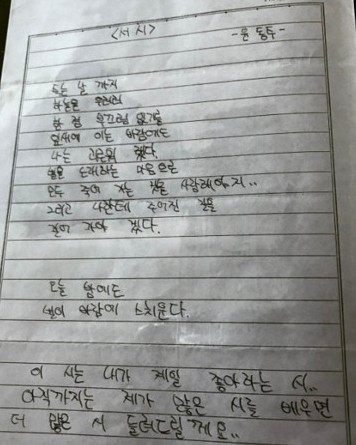 <서시>
-윤동주-
죽는 날 까지
하늘을 우러러
한 점 부끄럼 없기를
잎새에 이는 바람에도
나는 괴로워 했다.
별을 노래하는 마음으로
모든 죽어 가는 것을 사랑해야지..
그리고 나한테 주어진 길을
걸어 가야 겠다.
오늘 밤에도
별이 바람에 스치운다.
이 시는 내가 제일 좋아하는 시..
아직까지는 제가 많은 시를 배우면
더 많은 시 들려드릴게요..